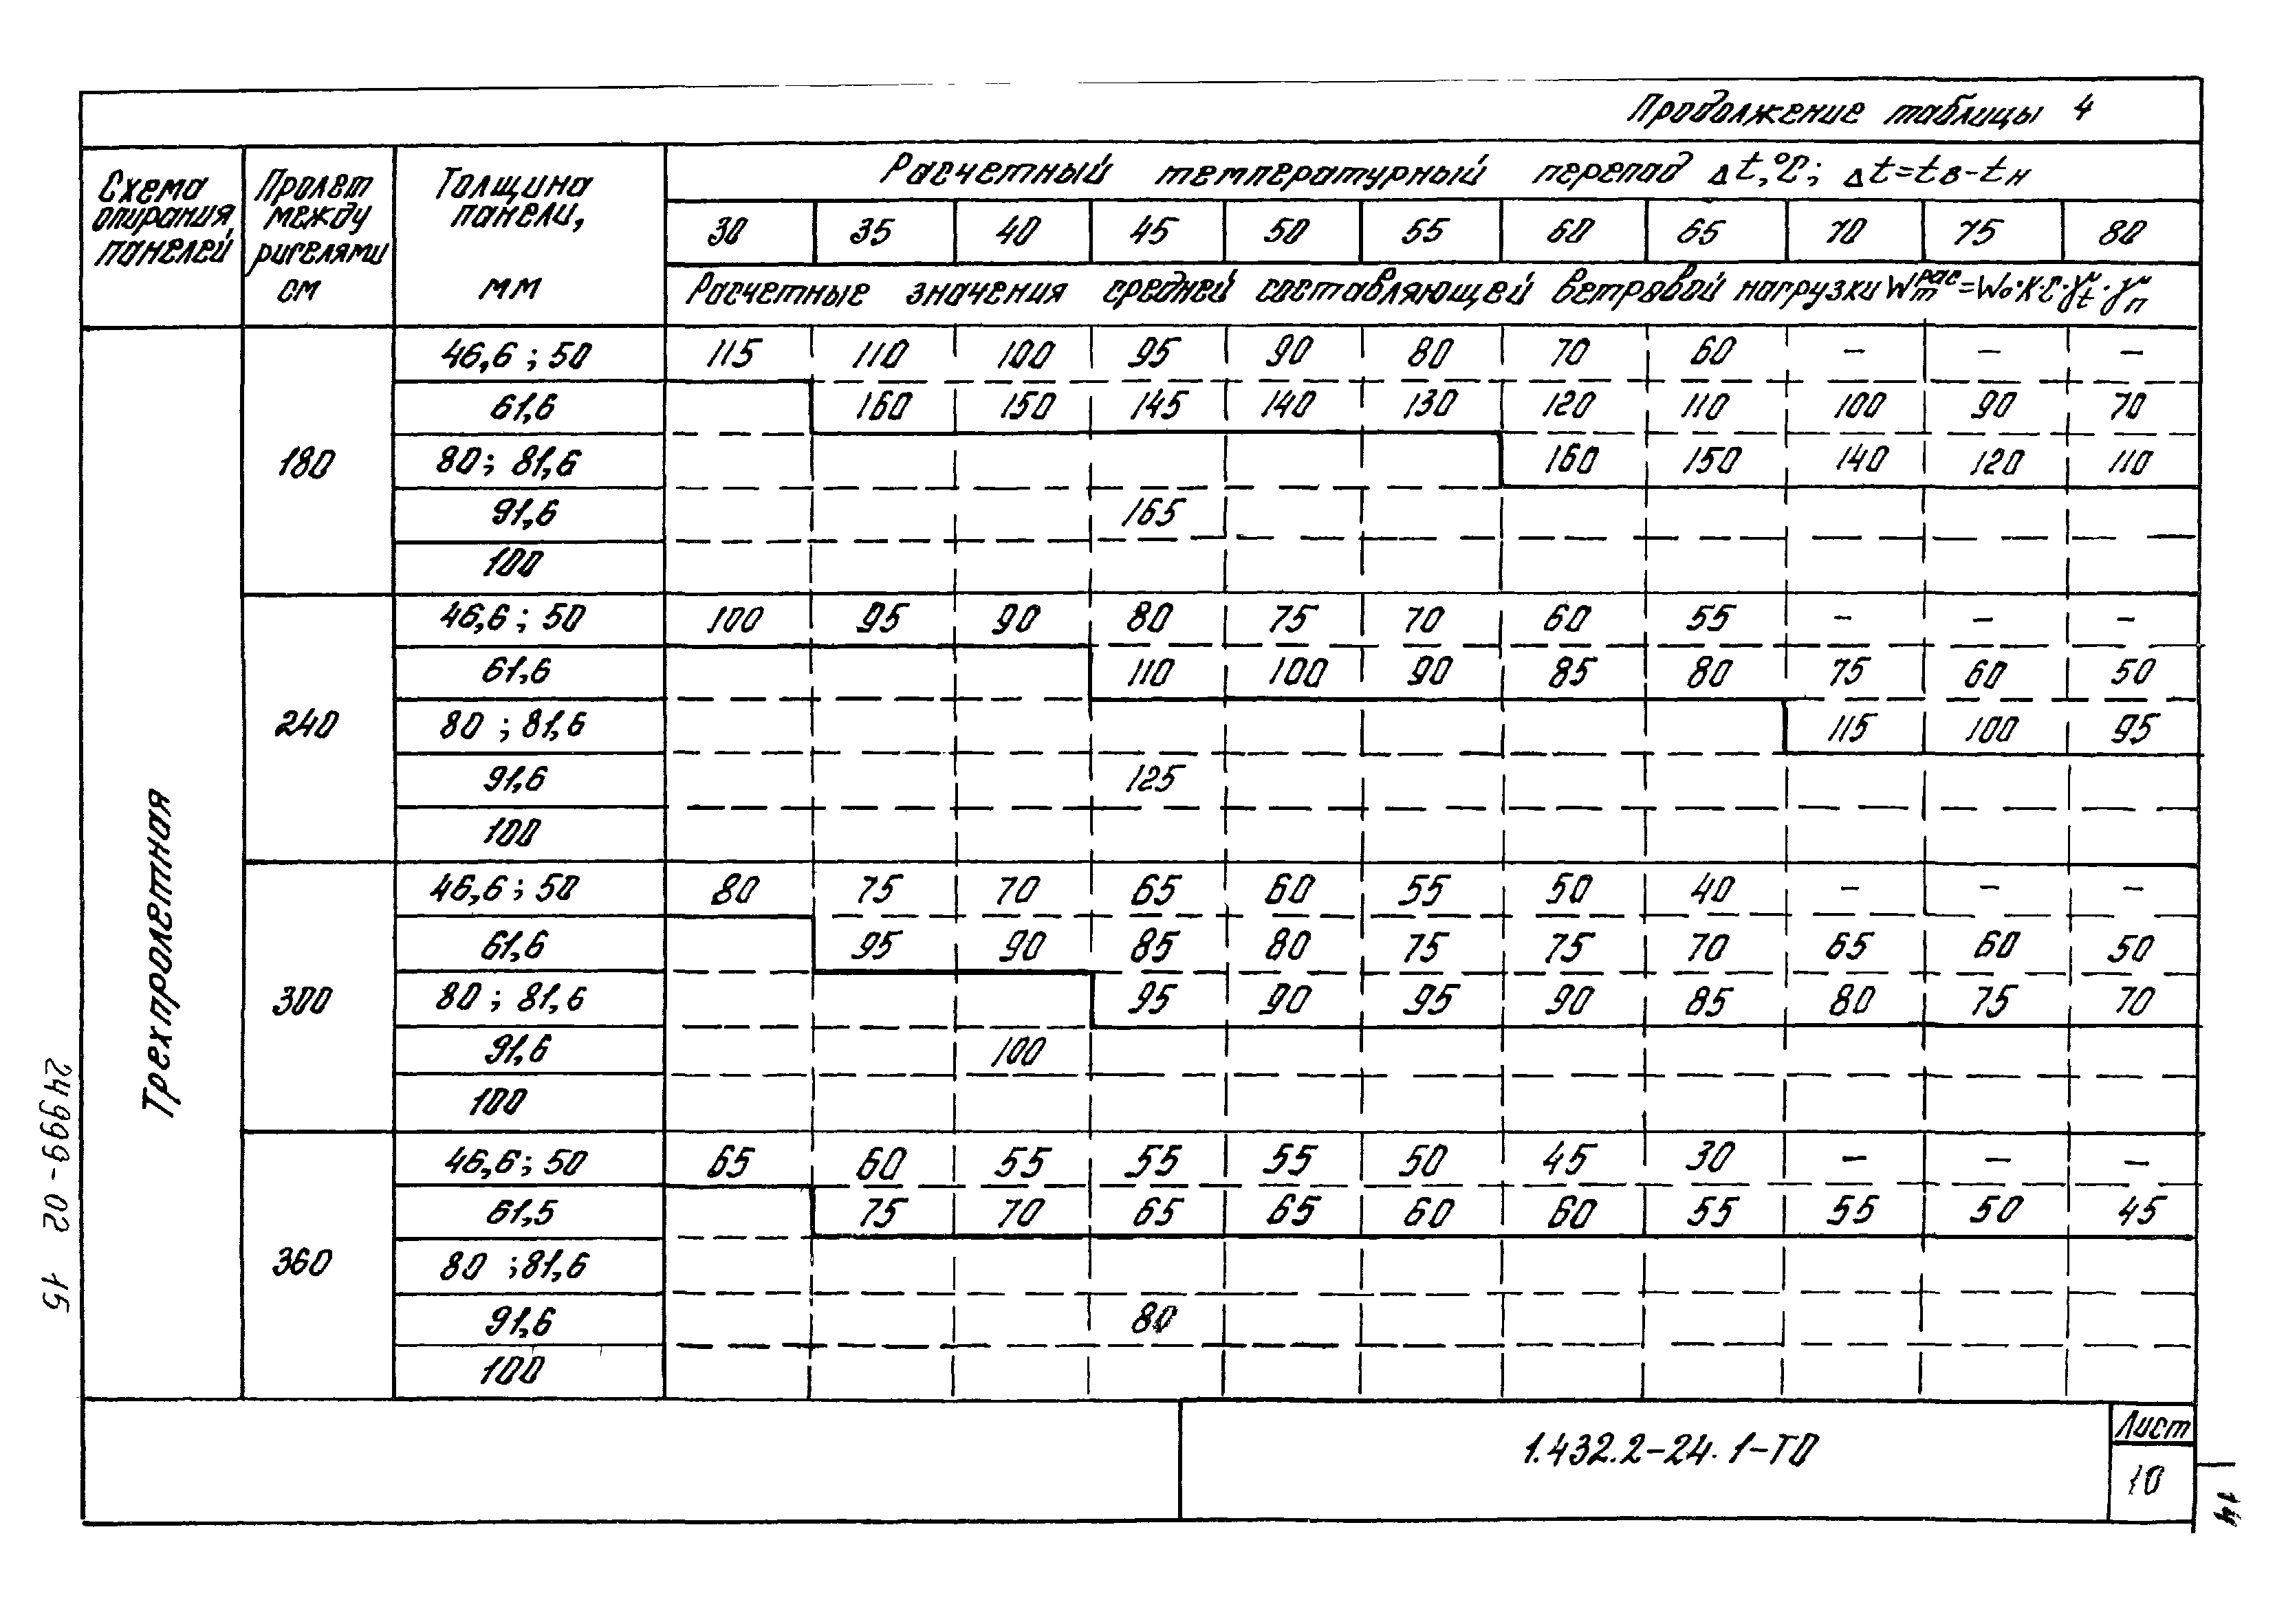 Продолжение таблицы 4
Схема опирания, панелей
Пролет между ригелями см
Толщина панели, мм
Расчетный температурный перепад Δt,°C; Δt=tв-tн
30 35 40 45 50 55 60 65 70 75 80
Расчетные значения средней составляющей ветровой нагрузки
Трехпролетная
180
46,6 ; 50 115 110 100 95 90 80 70 60 - - -
61,6 160 150 145 140 130 120 110 100 90 70
80; 81,6 160 150 140 120 110
91,6 165
100
240
46,6 ; 50 100 95 90 80 75 70 60 55 - - -
61,6 110 100 90 85 80 75 60 50
80 ; 81,6 115 100 95
91,6 125
100
300
46,6 ; 50 80 75 70 65 60 55 50 40 - - -
61,6 95 90 85 80 75 75 70 65 60 50
80 ; 81,6 95 90 95 90 85 80 75 70
91,6 100
100
360
46,6; 50 65 60 55 55 55 50 45 30 - - -
61,5 75 70 65 65 60 60 55 55 50 45
80 ; 81,6
91,6 80
100
1.432.2-24.1-ТО
Лист
10
24999-02 15
14